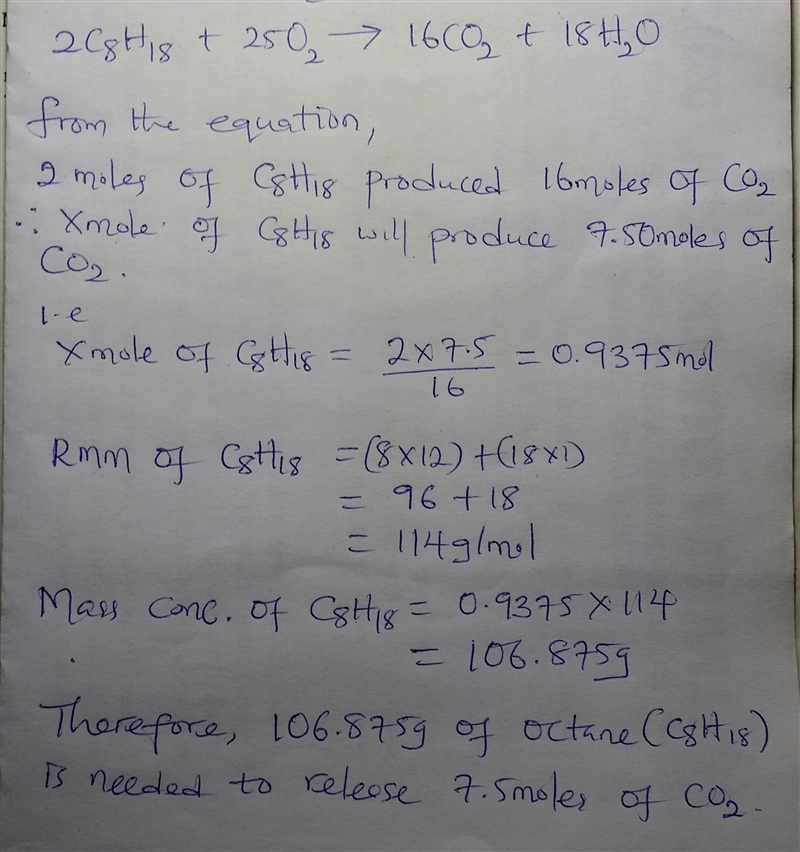 2C₈H₁₈ + 25O₂ → 16CO₂ + 18H₂O
from the equation,
2 moles of C₈H₁₈ produced 16moles of CO₂
∴ Xmole of C₈H₁₈ will produce 7.50moles of
CO₂.
i.e
Xmole of C₈H₁₈ = 2×7.5/16 = 0.9375mol
Rmm of C₈H₁₈ = (8×12) + (18×1)
= 96 + 18
= 114g/mol
Mass conc. of C₈H₁₈ = 0.9375×114
= 106.875g
Therefore, 106.875g of octane (C₈H₁₈)
is needed to release 7.5moles of CO₂.